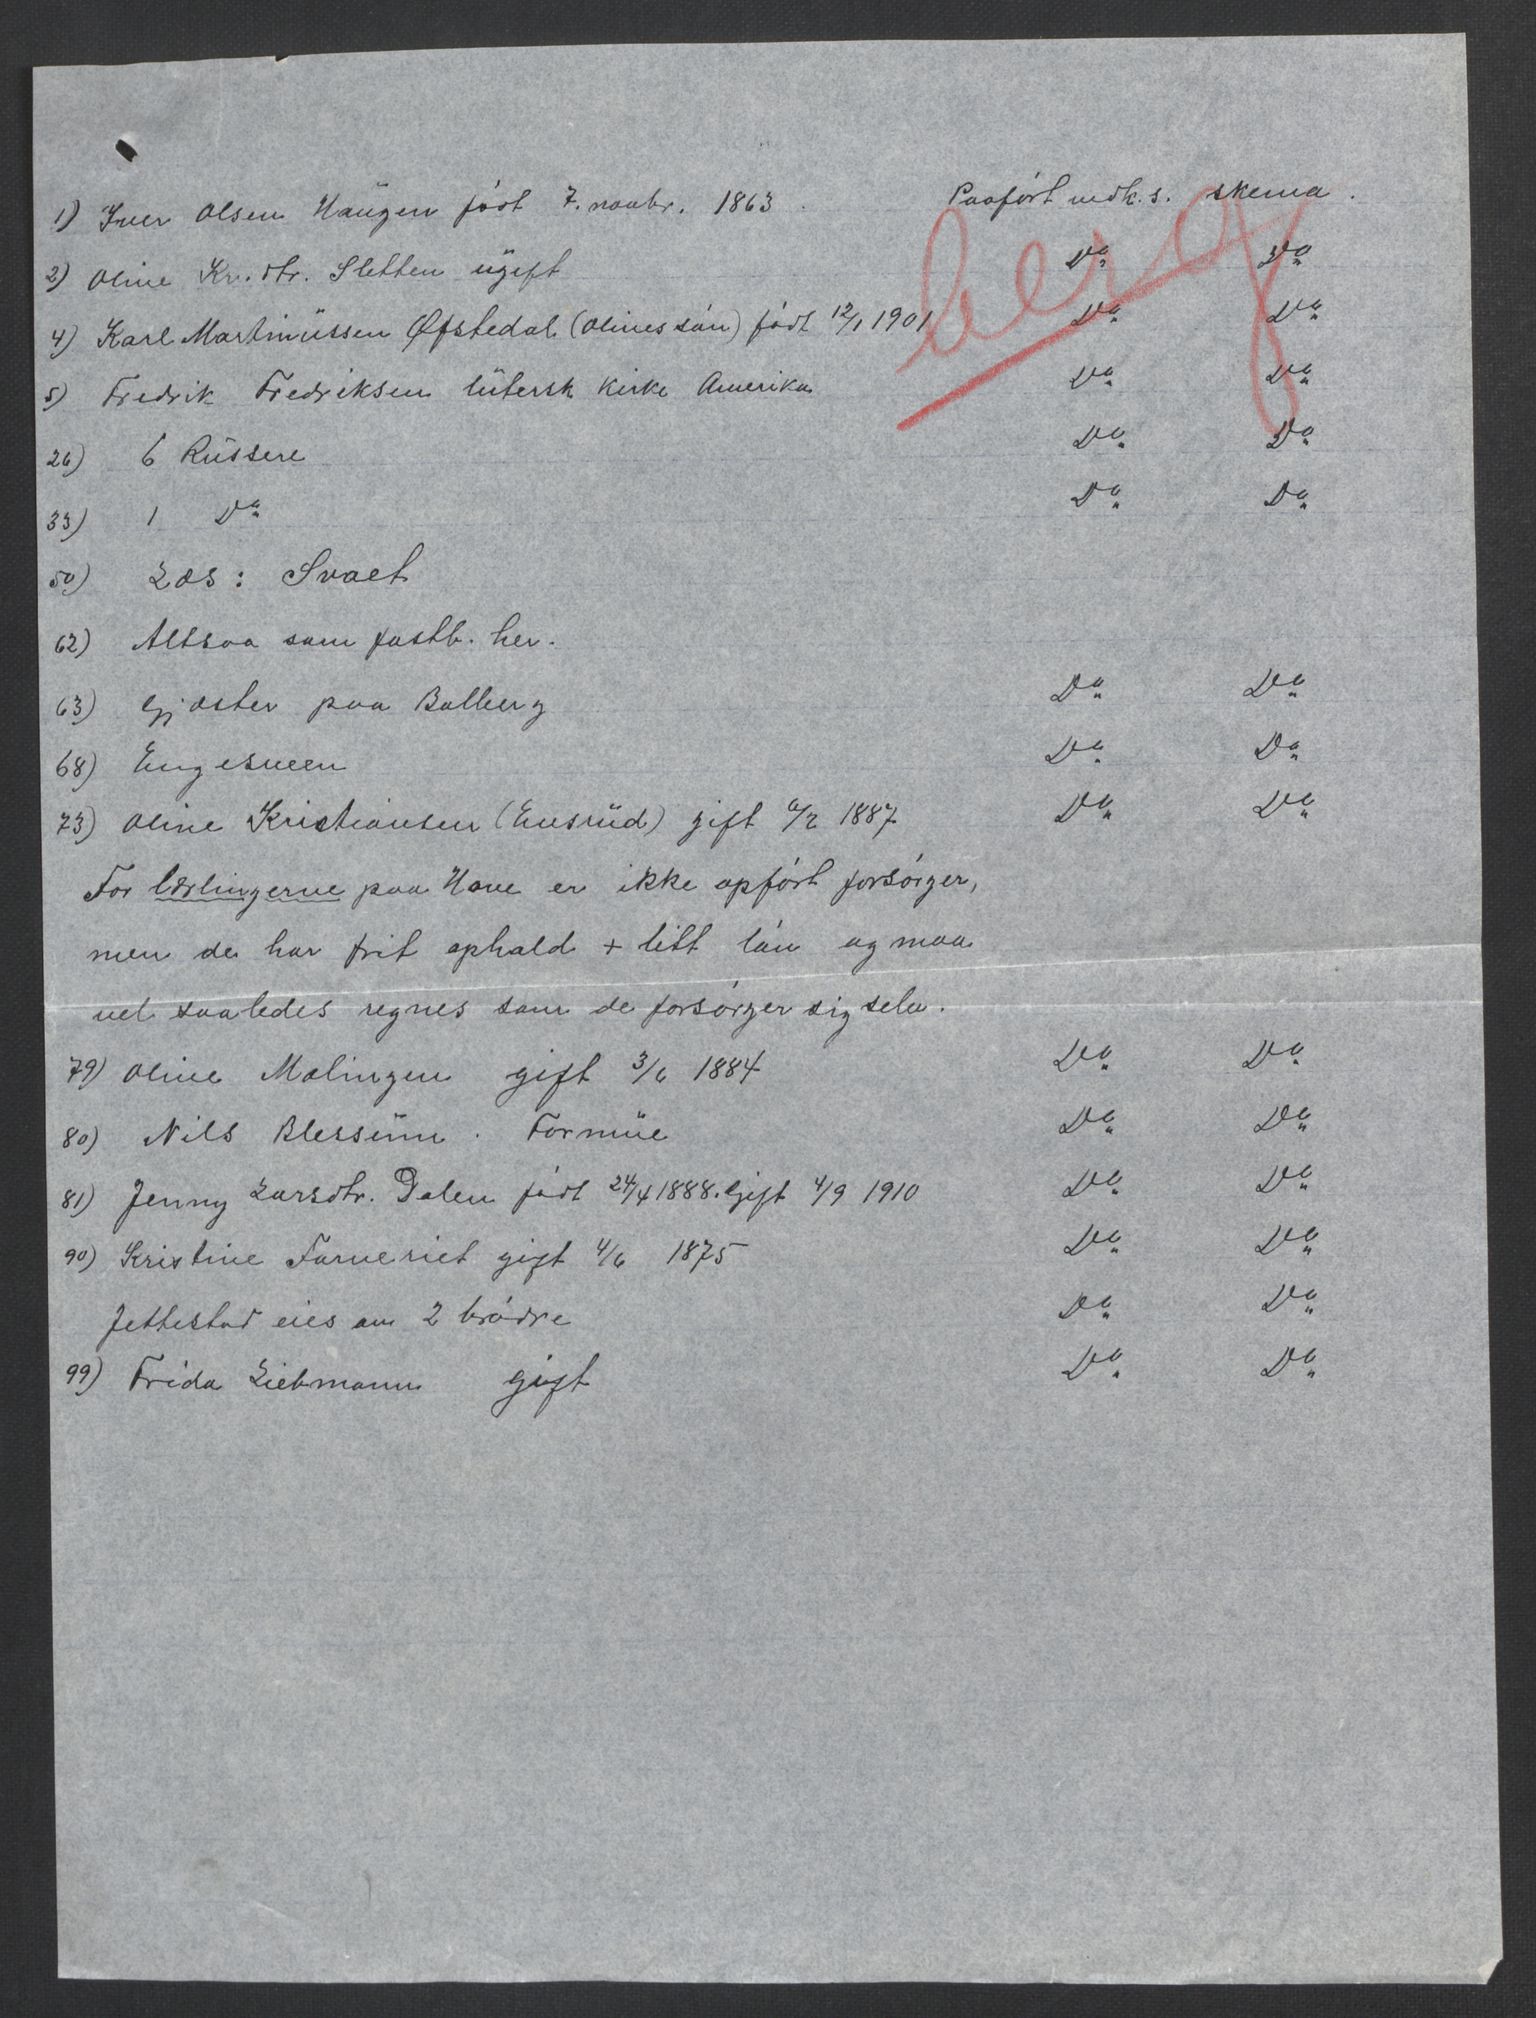 1) Iver Olsen Haugen født 7. novbr. 1863. Paaført vedk. s. skema.
2) Oline Kr. dtr. Sletten ugift Do Do
4) Karl Martinussen Øfstedal (Olines søn) født 12/1 1901 Do Do
5) Fredrik Fredriksen lutersk kirke Amerika Do Do
berg
26) 6 Russere Do Do
33) 1 Do Do Do
50) Læs: Svaet
62) Altsaa som fastb. her.
63) Gjæster paa Balberg Do Do
68) Engesveen Do Do
73) Oline Kristiansen (Ensrud) gift 6/2 1887 Do Do
For lærlingerne paa Hove er ikke opført forsørger,
men de har frit ophald + litt løn og maa
vel saaledes regnes som de forsørger sig selv.
79) Oline Molingen gift 3/6 1884 Do Do
80) Nils Blessum. Formue Do Do
81) Jenny Larsdtr. Dalen født 24/4 1888. Gift 4/9 1910 Do Do
90) Kristine Farveriet gift 4/6 1875 Do Do
Jettestad eies av 2 brødre Do Do
99) Frida Liebmann gift Do Do